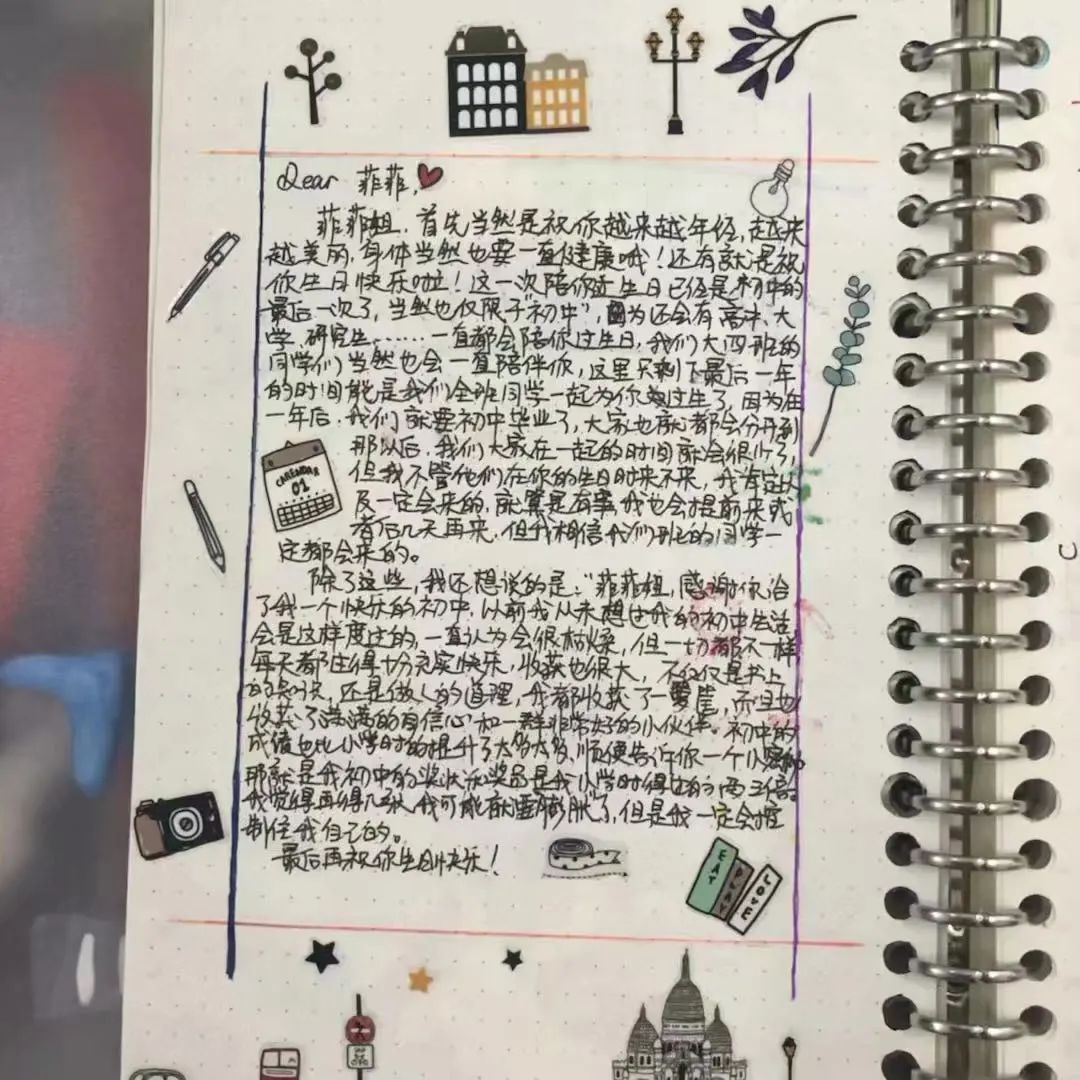 Dear 菲菲,
菲菲姐,首先当然是祝你越来越年轻,越来
越美丽,身体当然也要一直健康哦!还有就是祝
你生日快乐啦!这一次陪你过生日已经是初中的
最后一次了,当然也仅限于"初中",因为还会有高中、大
学、研究生……一直都会陪你过生日,我们大四班的
同学们当然也会一直陪伴你,这里只剩下最后一年
的时间能是我们全班同学一起为你过生了,因为在
一年后,我们就要初中毕业了,大家也就都会分开到
那以后,我们大家在一起的时间就会很少了,
但我不管他们在你的生日时来不来,我肯定以
及一定会来的,就算是有事我也会提前来或
者后几天再来,但我相信我们班的同学一
定都会来的。
除了这些,我还想说的是:"菲菲姐,感谢你给
了我一个快乐的初中,以前我从未想过我的初中生活
会是这样度过的,一直认为会很枯燥,但一切都不一样
每天都过得十分充实快乐,收获也很大,不仅仅是书上
的知识,还是做人的道理,我都收获了一箩筐,而且也
收获了满满的自信心和一群非常好的小伙伴。初中的
成绩也比小学时的提升了太多太多,顺便告诉你一个小秘密
那就是我初中的奖状和奖品是我小学时得过的两三倍。
我觉得再得几张,我可能就要"膨胀"了,但是我一定会控
制住我自己的。
最后再祝你生日快乐!
CARENDAR
01
EAT
PLAY
LOVE